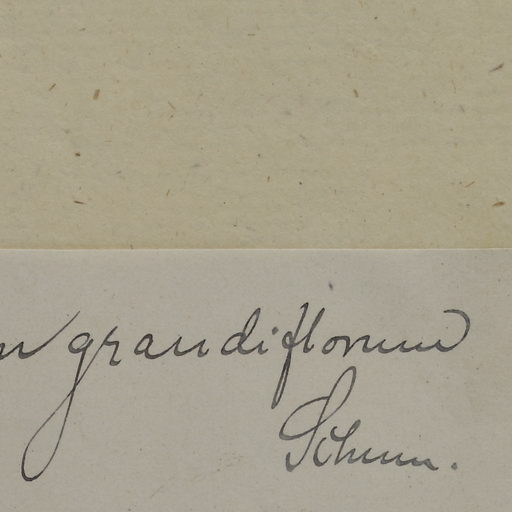 grandiflorum
Schum.